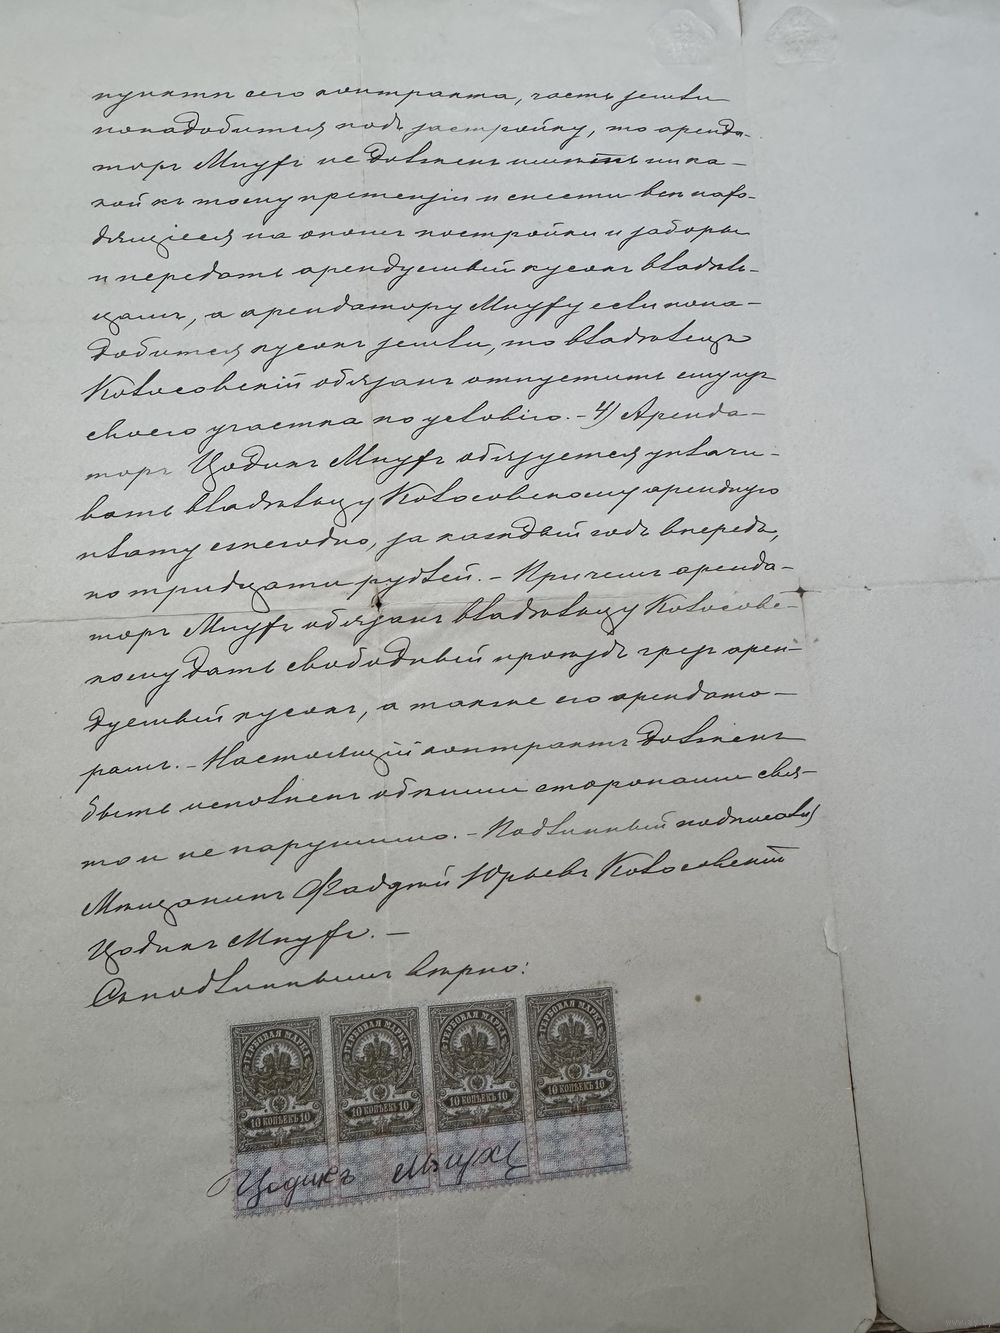 пункты сего контракта, часть земли
понадобится подъ застройку, то аренда-
торъ Мнухъ не долженъ имѣть ника-
кой къ тому претензіи и снести всѣ нахо-
дящіеся на ономъ постройки и заборы
и передать арендуемый кусокъ владѣль-
цамъ, а арендатору Мнуху если пона-
добится кусокъ земли, то владѣлецъ
Колосовскій обязанъ отпустить ему изъ
своего участка по условію. - 4) Аренда-
торъ Цодикъ Мнухъ обязуется уплачи-
вать владѣльцу Колосовскому арендную
плату ежегодно, за каждый годъ впередъ,
по тридцати рублей. - Причемъ аренда-
торъ Мнухъ обязанъ владѣльцу Колосовс-
кому дать свободный проѣздъ чрезъ арен-
дуемый кусокъ, а также его арендато-
рамъ. - Настоящій контрактъ долженъ
быть исполненъ обѣими сторонами свя-
то и не нарушимо. - Подлинный подписали
Мѣщанинъ Юрьевъ Колосовскій
Цодикъ Мнухъ. -
Съ подлиннымъ вѣрно:
ГЕРБОВАЯ МАРКА ГЕРБОВАЯ МАРКА ГЕРБОВАЯ МАРКА ГЕРБОВАЯ МАРКА
10 КОПѢЕКЪ 10 10 КОПѢЕКЪ 10 10 КОПѢЕКЪ 10 10 КОПѢЕКЪ 10
Цодикъ
www.ay.by